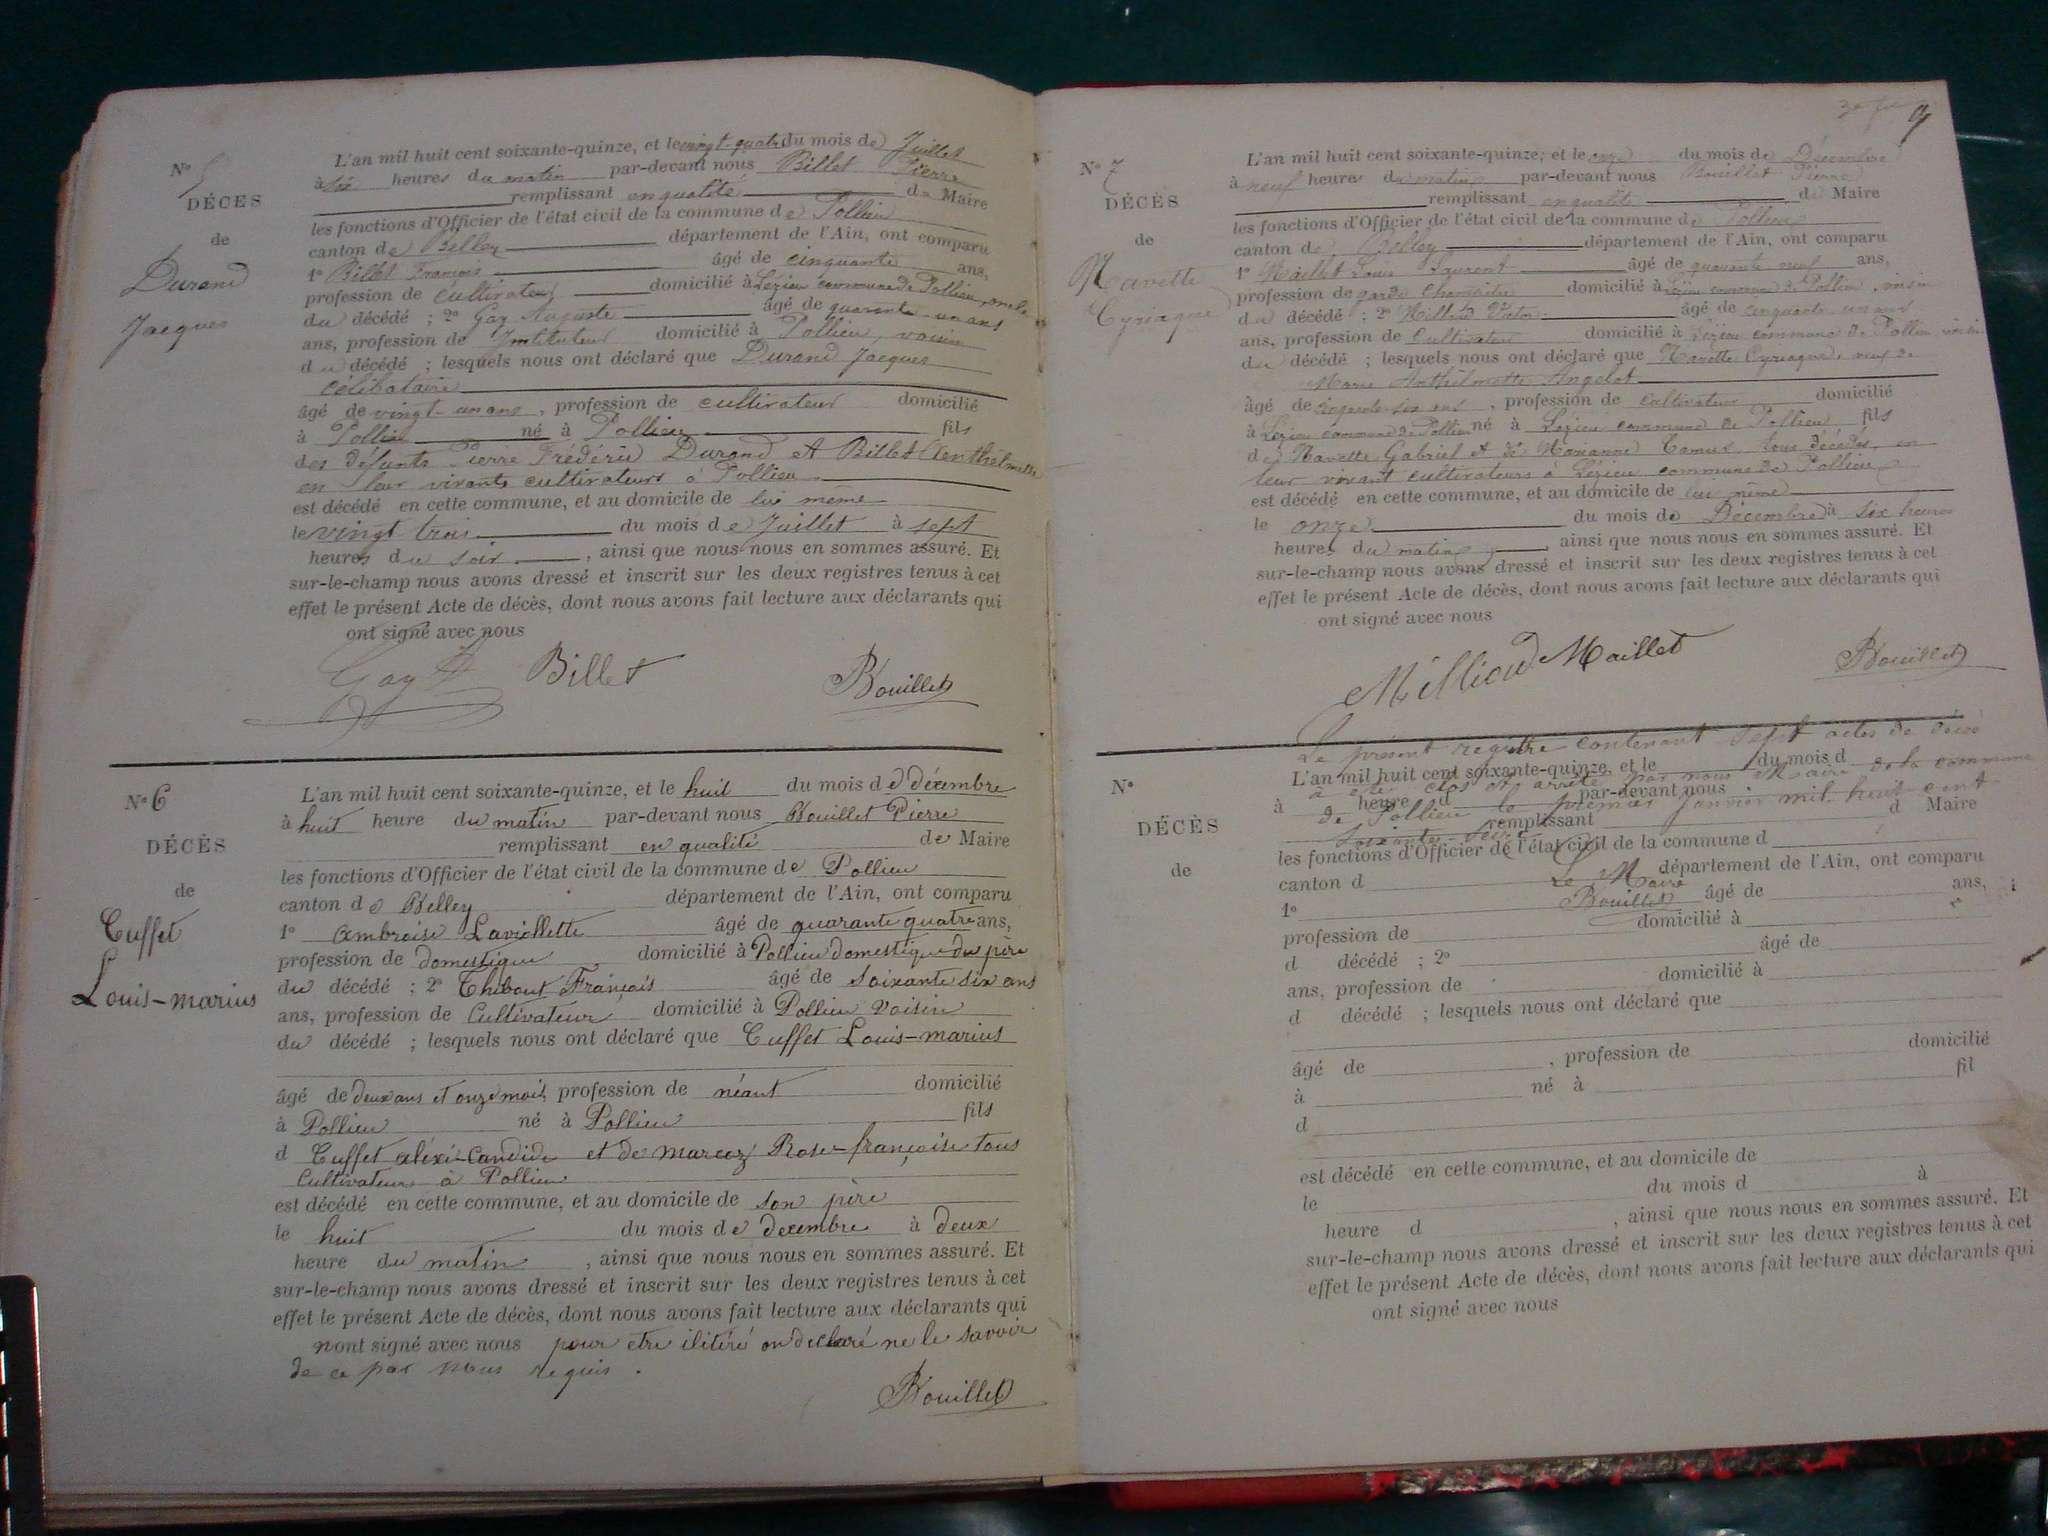 N° 5
DÉCÈS
de
Durand
Jacques
L'an mil huit cent soixante-quinze, et le vingt-quatre du mois de Juillet
à six heures du matin par-devant nous Billet Pierre
remplissant en qualité de Maire
les fonctions d'Officier de l'état civil de la commune de Pollieu
canton de Belley département de l'Ain, ont comparu
1° Billet François âgé de cinquante ans,
profession de cultivateur domicilié à Lézieu commune de Pollieu, oncle
du décédé ; 2° Gay Auguste âgé de quarante-un ans
ans, profession de Instituteur domicilié à Pollieu, voisin
du décédé ; lesquels nous ont déclaré que Durand Jacques
célibataire
âgé de vingt-un ans, profession de cultivateur domicilié
à Pollieu né à Pollieu fils
des défunts Pierre Frédéric Durand et Billet Anthelmette
en leur vivants cultivateurs à Pollieu
est décédé en cette commune, et au domicile de lui même
le vingt trois du mois de Juillet à sept
heures du soir, ainsi que nous nous en sommes assuré. Et
sur-le-champ nous avons dressé et inscrit sur les deux registres tenus à cet
effet le présent Acte de décès, dont nous avons fait lecture aux déclarants qui
ont signé avec nous
Gay A Billet Bouillet
N° 6
DÉCÈS
de
Cuffet
Louis-marius
L'an mil huit cent soixante-quinze, et le huit du mois de décembre
à huit heure du matin par-devant nous Bouillet Pierre
remplissant en qualité de Maire
les fonctions d'Officier de l'état civil de la commune de Pollieu
canton de Belley département de l'Ain, ont comparu
1° ambroise Laviollette âgé de quarante quatre ans,
profession de domestique domicilié à Pollieu domestique du père
du décédé ; 2° Thibout François âgé de soixante six ans
ans, profession de Cultivateur domicilié à Pollieu Voisin
du décédé ; lesquels nous ont déclaré que Cuffet Louis-marius
âgé de deux ans et onze mois, profession de néant domicilié
à Pollieu né à Pollieu fils
d Cuffet aléxi-Candide et de marcoz Rose-françoise tous
Cultivateurs à Pollieu
est décédé en cette commune, et au domicile de son père
le huit du mois de decembre à deux
heure du matin, ainsi que nous nous en sommes assuré. Et
sur-le-champ nous avons dressé et inscrit sur les deux registres tenus à cet
effet le présent Acte de décès, dont nous avons fait lecture aux déclarants qui
nont signé avec nous pour etre ilitéré on declaré ne le savoir
de ce par nous requis.
Bouillet
9
N° 7
DÉCÈS
de
Navette
Cyriaque
L'an mil huit cent soixante-quinze; et le onze du mois de Décembre
à neuf heures du matin par-devant nous Bouillet Pierre
remplissant en qualité de Maire
les fonctions d'Officier de l'état civil de la commune de Pollieu
canton de Belley département de l'Ain, ont comparu
1° Maillet Louis Laurent âgé de quarante neuf ans,
profession de garde champêtre domicilié à Lézieu commune de Pollieu, voisin
du décédé ; 2° Milliod Victor âgé de cinquante-un ans
ans, profession de Cultivateur domicilié à Lézieu commune de Pollieu voisin
du décédé ; lesquels nous ont déclaré que Navette Cyriaque, veuf de
Marie Anthelmette Angelot
âgé de cinquante-six ans, profession de Cultivateur domicilié
à Lézieu commune de Pollieu né à Lézieu commune de Pollieu fils
de Navette Gabriel et de Marianne Camus tous décédés, en
leur vivant cultivateurs à Lézieu commune de Pollieu
est décédé en cette commune, et au domicile de lui même
le onze du mois de Décembre à six heures
heures du matin, ainsi que nous nous en sommes assuré. Et
sur-le-champ nous avons dressé et inscrit sur les deux registres tenus à cet
effet le présent Acte de décès, dont nous avons fait lecture aux déclarants qui
ont signé avec nous
Milliod Maillet Bouillet
Le présent registre contenant sept actes de décès
a été clos et arrêté par nous Maire de la commune
de Pollieu le premier Janvier mil huit cent
soixante-seize
Le Maire
Bouillet
N°
DÉCÈS
de
L'an mil huit cent soixante-quinze, et le du mois d
à heure d par-devant nous
remplissant d Maire
les fonctions d'Officier de l'état civil de la commune d
canton d département de l'Ain, ont comparu
1° âgé de ans,
profession de domicilié à
d décédé ; 2° âgé de
ans, profession de domicilié à
d décédé ; lesquels nous ont déclaré que
âgé de , profession de domicilié
à né à fil
d
est décédé en cette commune, et au domicile de
le du mois d à
heure d , ainsi que nous nous en sommes assuré. Et
sur-le-champ nous avons dressé et inscrit sur les deux registres tenus à cet
effet le présent Acte de décès, dont nous avons fait lecture aux déclarants qui
ont signé avec nous